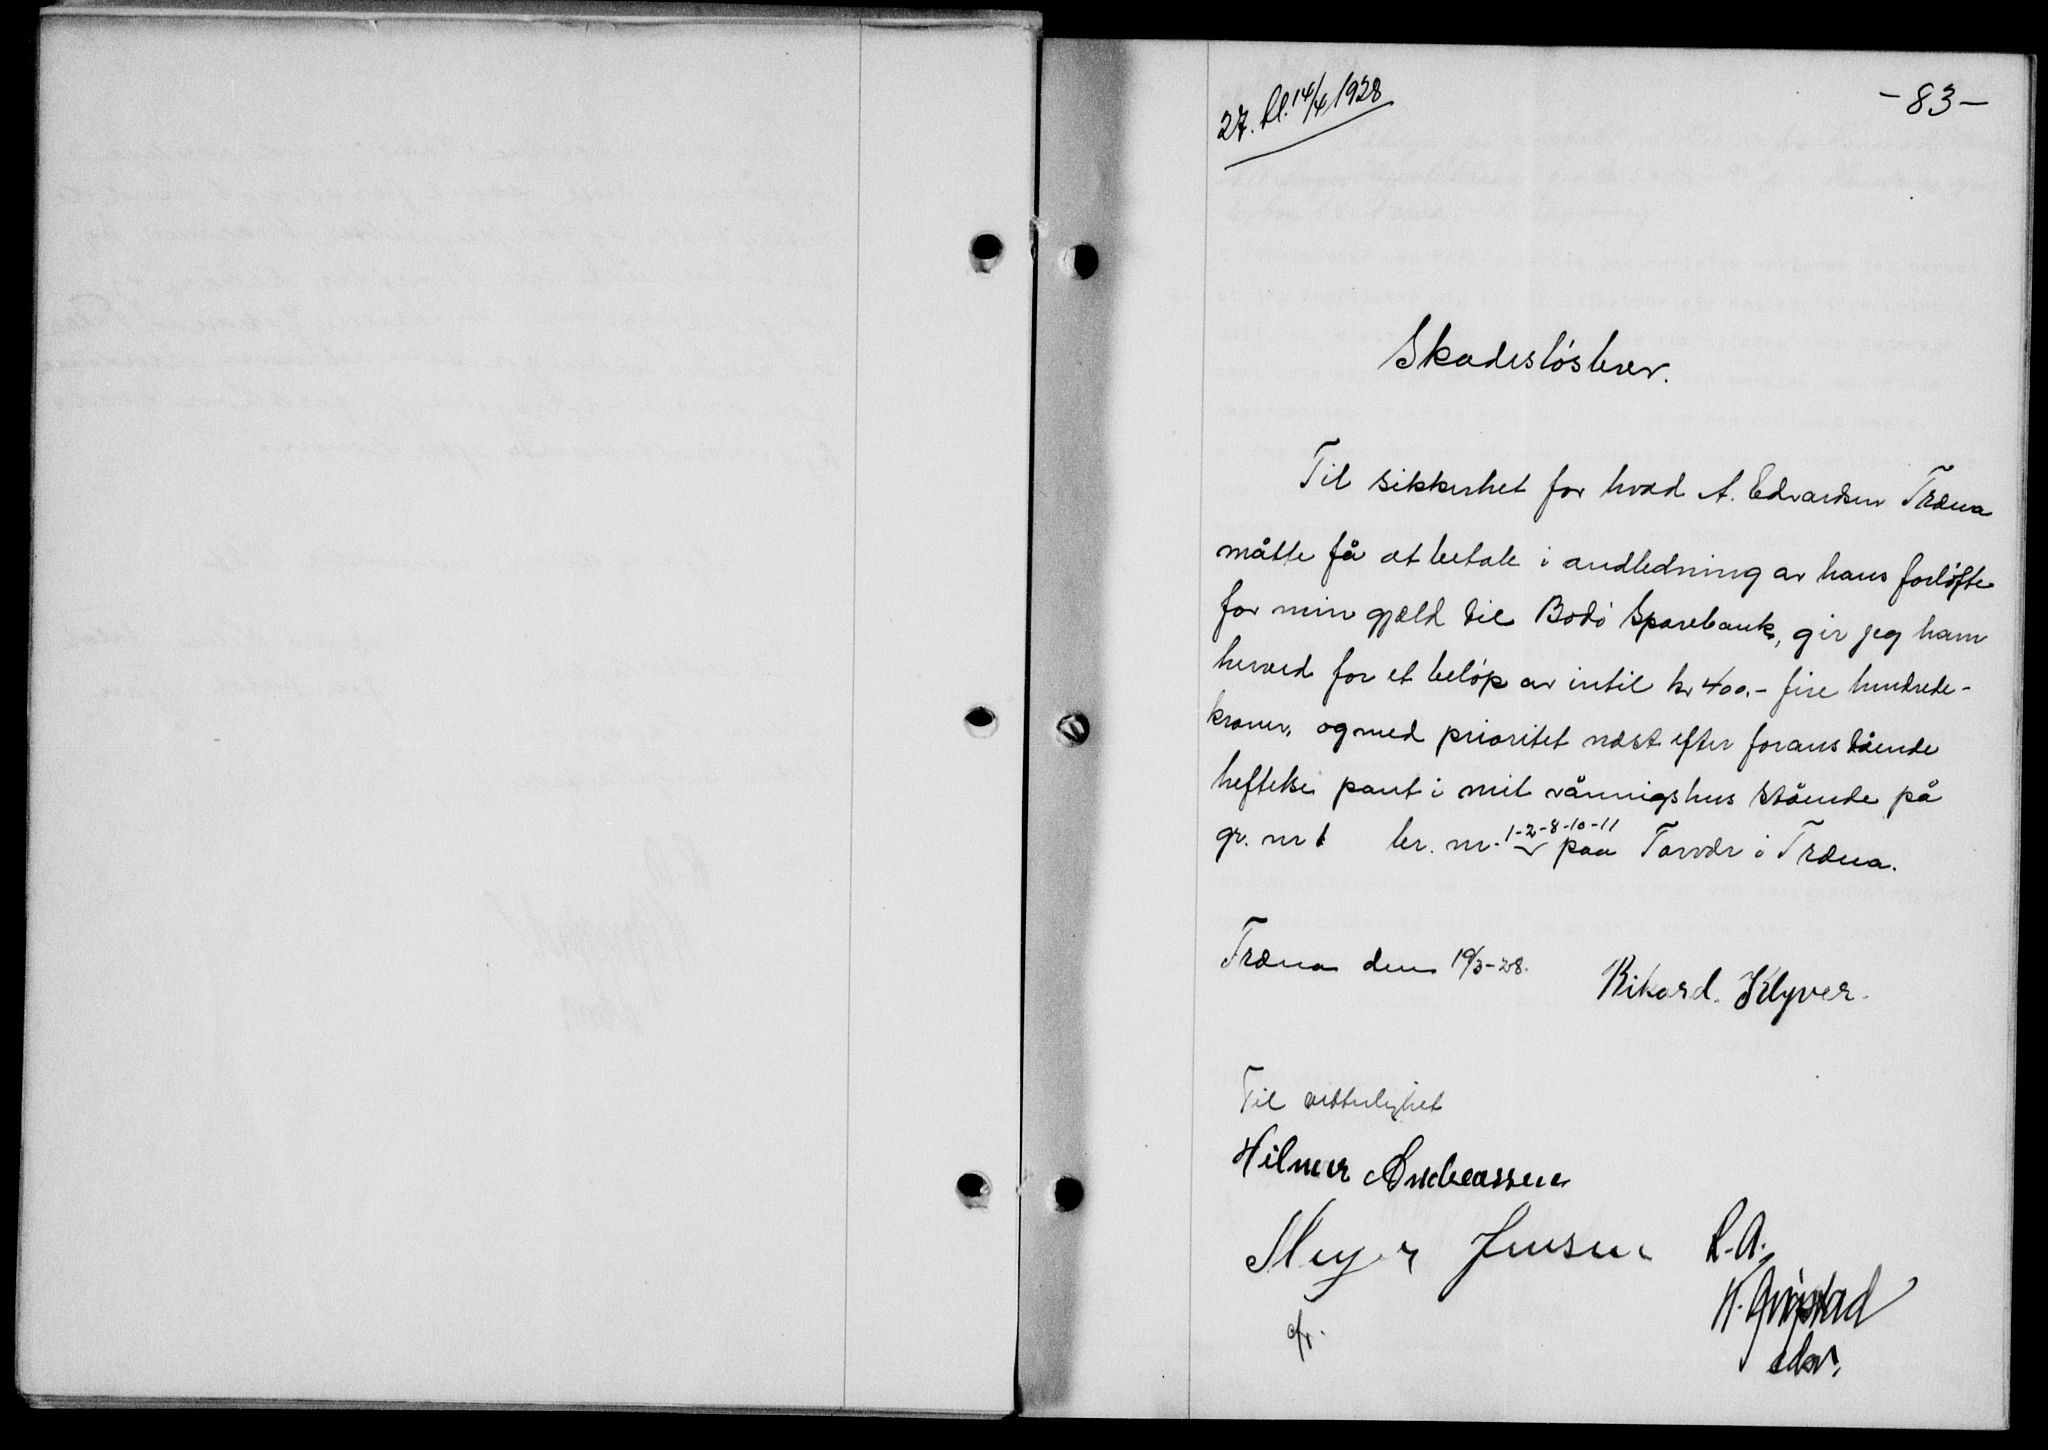 27. bl. 14/4 1928
- 83 -
Skadesløsbrev.
Til sikkerhet for hvad A. Edvardsen Træna
måtte få at betale i andledning av hans forløfte
for min gjæld til Bodø Sparebank, gir jeg ham
herved for et beløp av intil kr 400.- fire hundrede-
kroner, og med prioritet næst efter foranstående
heftelse pant i mit våningshus stående på
gr. nr 1 br. nr. 1-2-8-10-11 paa Torvær i Træna.
Træna den 19/3-28.
Rikard. Klyver.
Til vitterlighet
Hilmar Andreassen
Meyer Jensen
R.A.